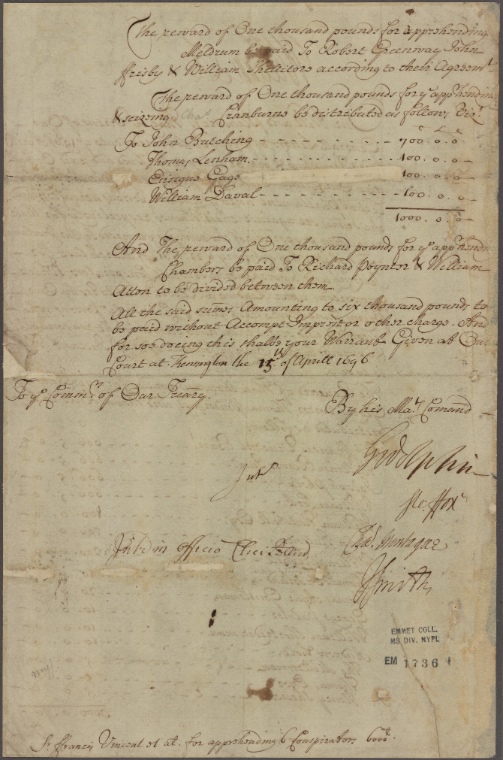 The reward of One thousand pounds for apprehending
Meldrum be paid To Robert Greenway John
ffrisby & William Skelliors according to their Agreemt.
The reward of One thousand pounds for ye apprhending
& seizing Cranburne be distributed as follow; Viz.
To John Butching - - - 700. 0. 0
Thomas Lenham - - - 100. 0. 0
Enrique Gago - - - 100. 0. 0
William Laval - - - 100. 0. 0
1000. 0. 0
And The reward of One thousand pounds for ye apprhending
Chambers be paid To Richard Poynter & William
Atton to be divided between them
All the said summes Amounting to six thousand pounds to
be paid without Accompt Imprest or other charge. And
for soe doeing this shalbe your Warrant Given att Our
Court at Kensington the 15th of Aprill 1696
To ye Commrs. of Our Treãry. By his Mats. Comand
Godolphin
Ste ffox
Intr
Chs. Mountague
Intr in officio Clici
JSmith
EMMET COLL.
MS. DIV. NYPL
EM 1736
Sr. Francis Vincent et al. for apprehending 6 Conspirators 6000£.